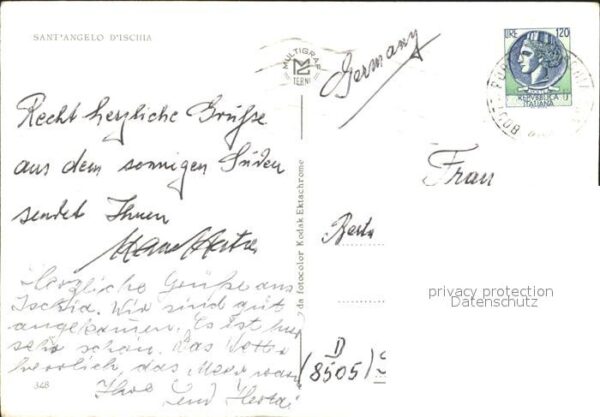 SANT'ANGELO D'ISCHIA
MULTIGRAF
TERNI
Germany
LIRE 120
REPUBBLICA
ITALIANA
Recht herzliche Grüße
aus dem sonnigen Süden
sendet Ihnen
Herzliche Grüße aus
Ischia. Wir sind gut
angekommen. Es ist hier
sehr schön. Das Wetter
herrlich, das Meer warm
Ihre
und Herta
348
da fotocolor Kodak Ektachrome
Frau
Berta
privacy protection
Datenschutz
D
(8505)